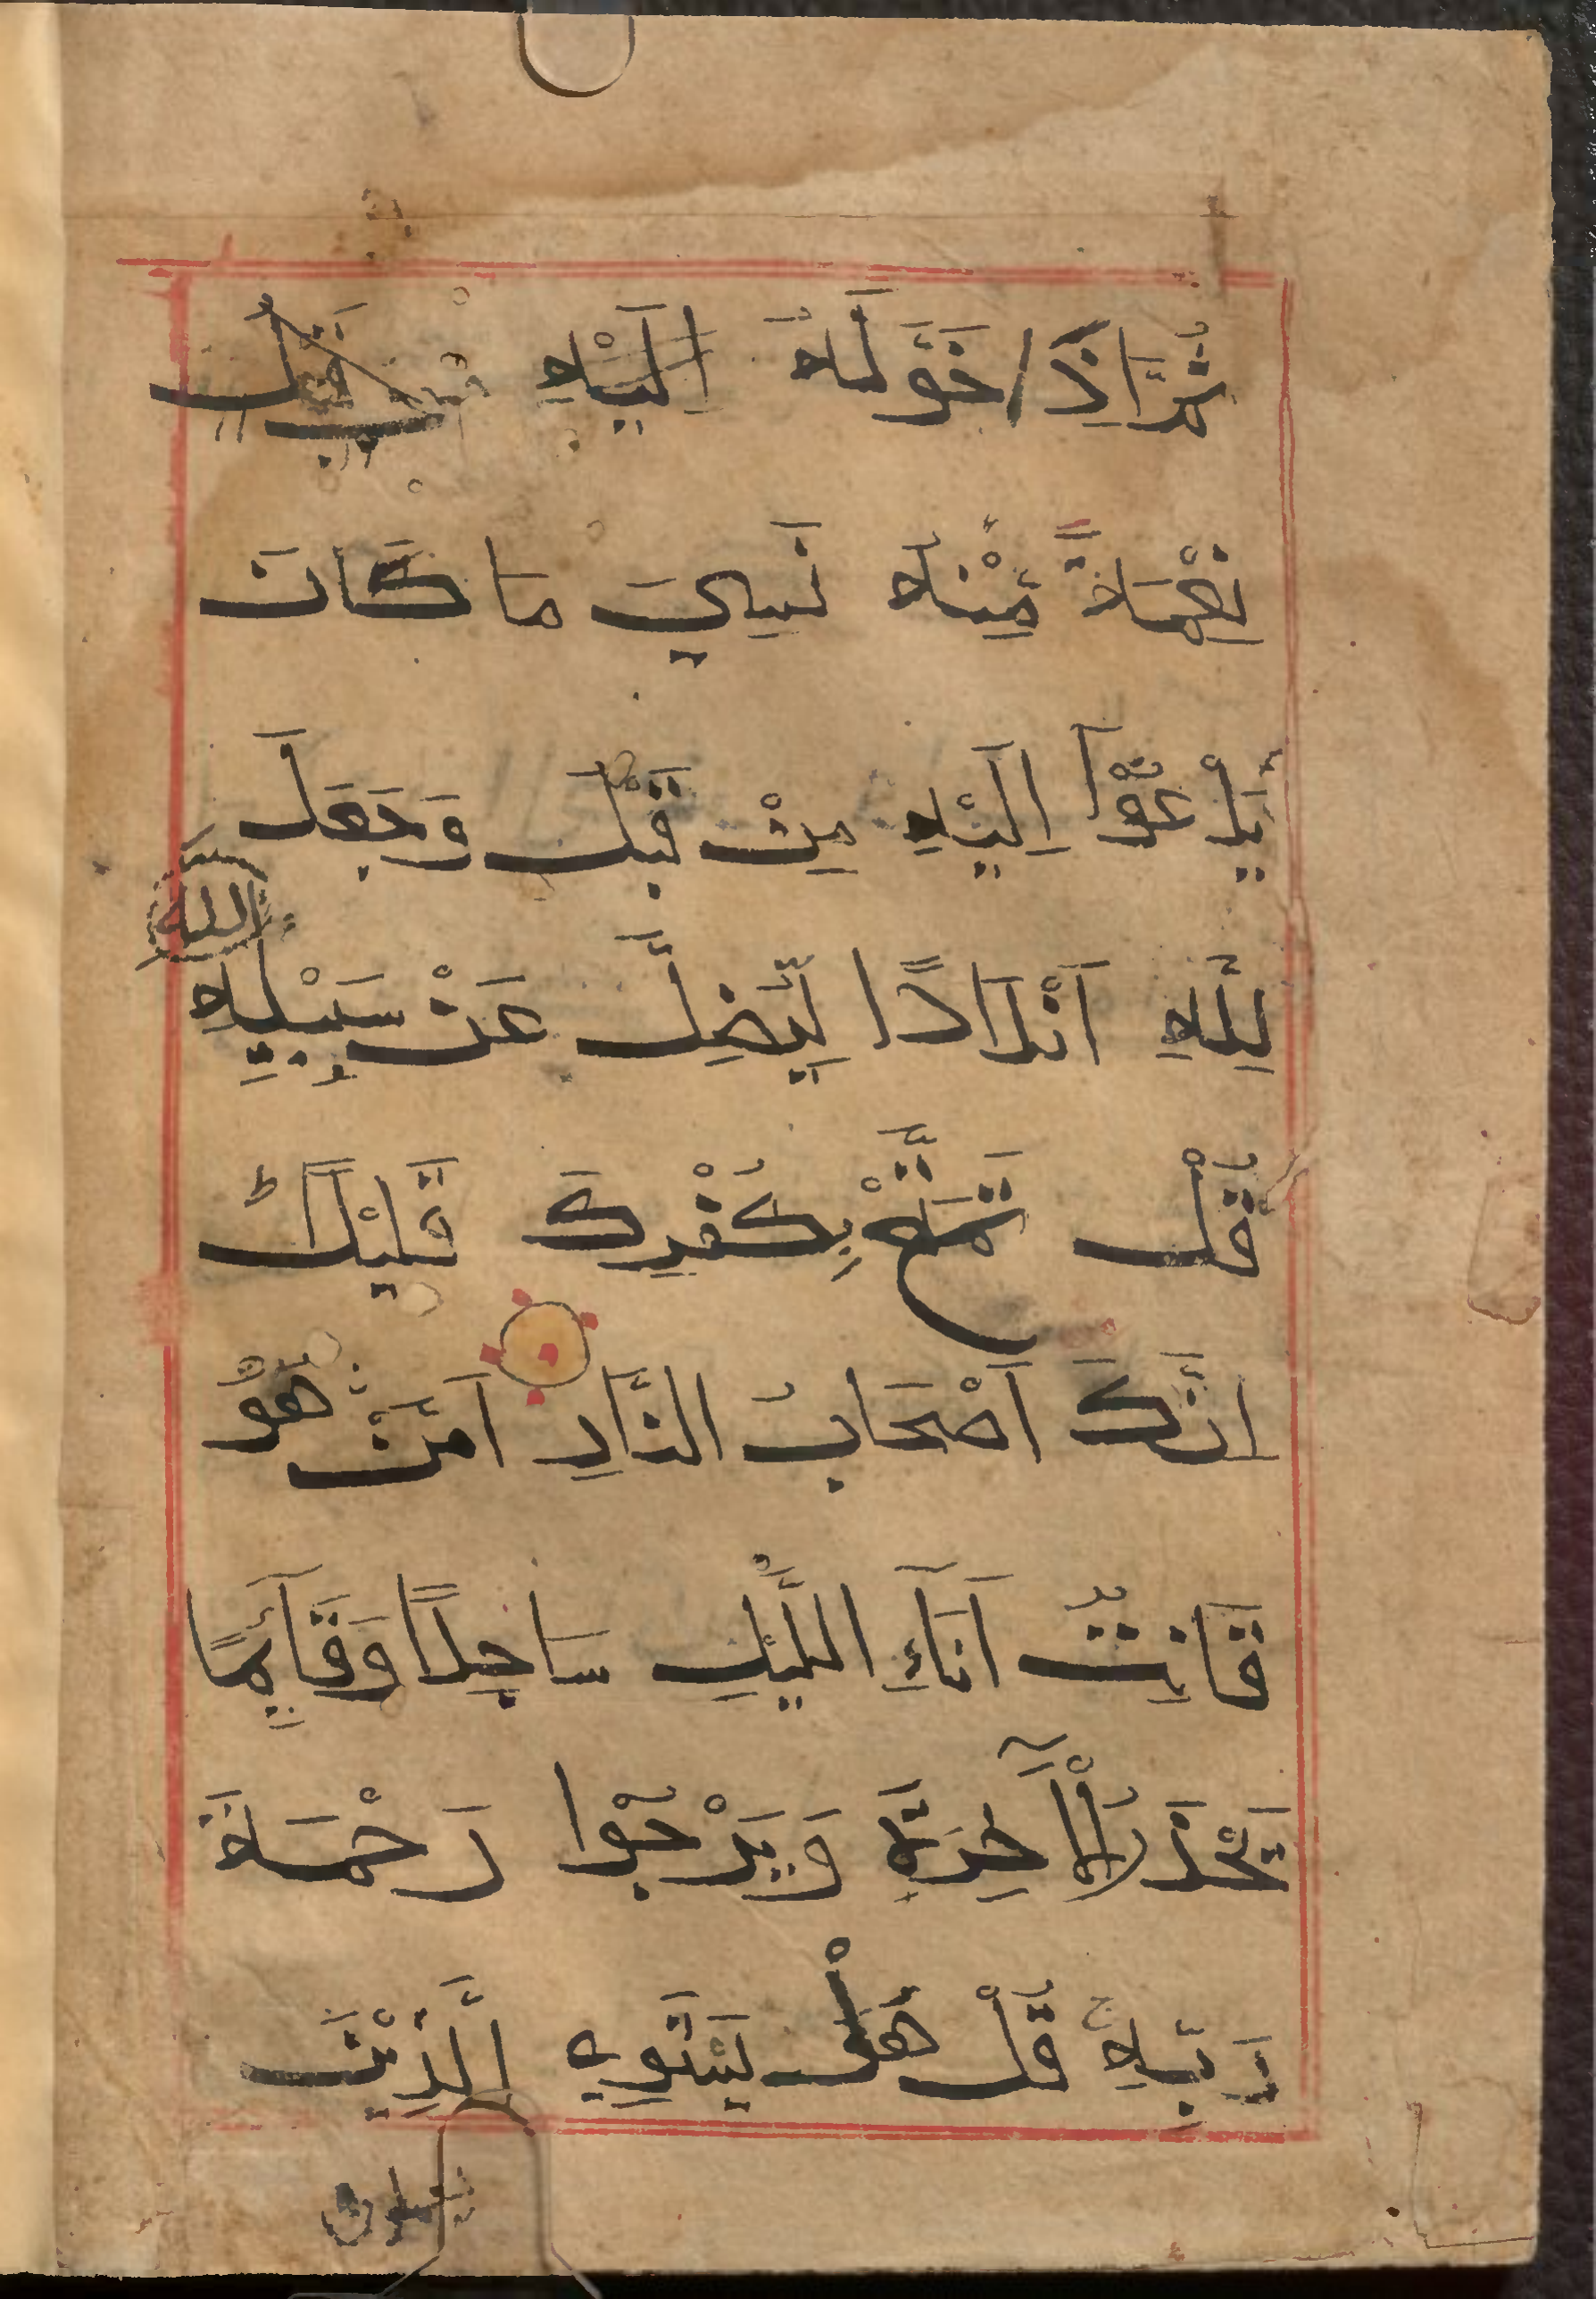 ثُمَّ اِذَا خَوَّلَهُ اِلَيْهِ
نِعْمَةً مِّنْهُ نَسِيَ مَا كَانَ
يَدْعُوْا اِلَيْهِ مِنْ قَبْلُ وَجَعَلَ
الله
لِلّٰهِ اَنْدَادًا لِّيُضِلَّ عَنْ سَبِيْلِهٖ
قُلْ تَمَتَّعْ بِكُفْرِكَ قَلِيْلًا
اِنَّكَ اَصْحَابِ النَّارِ اَمَّنْ هُوَ
قَانِتٌ اٰنَآءَ اللَّيْلِ سَاجِدًا وَّقَآئِمًا
يَحْذَرُ الْاٰخِرَةَ وَيَرْجُوْا رَحْمَةَ
رَبِّهٖ قُلْ هَلْ يَسْتَوِي الَّذِيْنَ